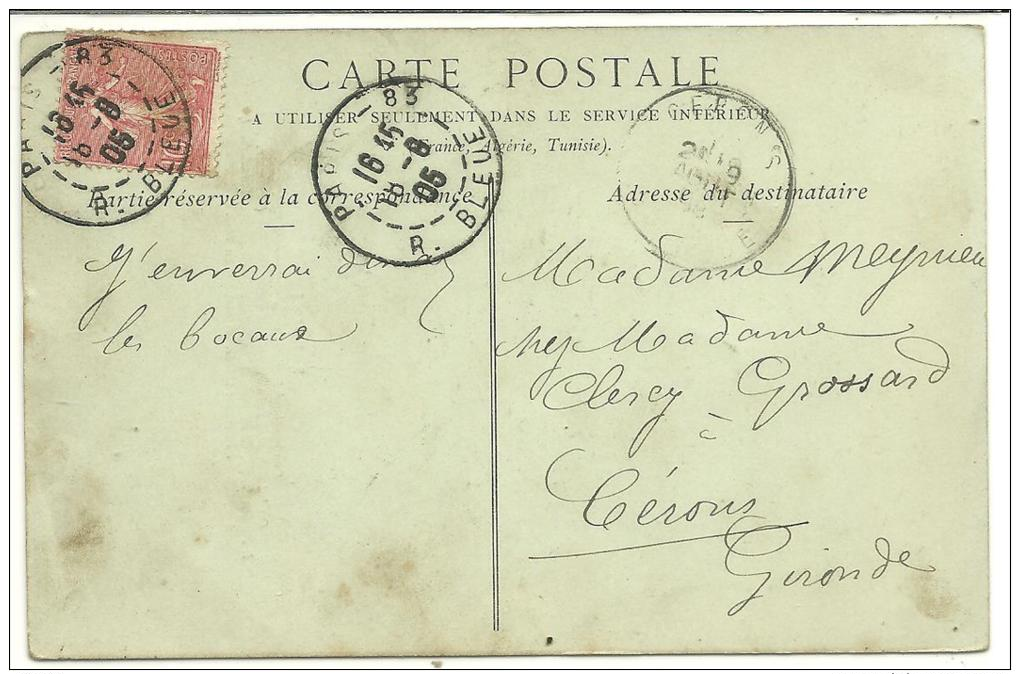 CARTE POSTALE
A UTILISER SEULEMENT DANS LE SERVICE INTÉRIEUR
(France, Algérie, Tunisie).
Partie réservée à la correspondance
Adresse du destinataire
83
PARIS
16 45
18 - 8
05
R. BLEUE
83
PARIS
16 45
18 - 8
05
R. BLEUE
CERONS
POSTES
J'enverrai
les bocaux
Madame Meynieu
chez Madame
Clercy Grossard
à
Cérons
Gironde